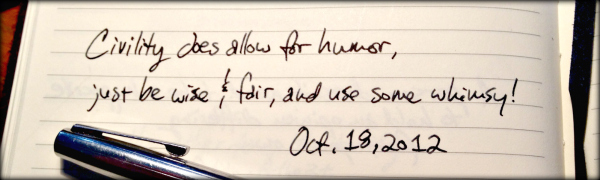 Civility does allow for humor,
just be wise & fair, and use some whimsy!
Oct. 18, 2012